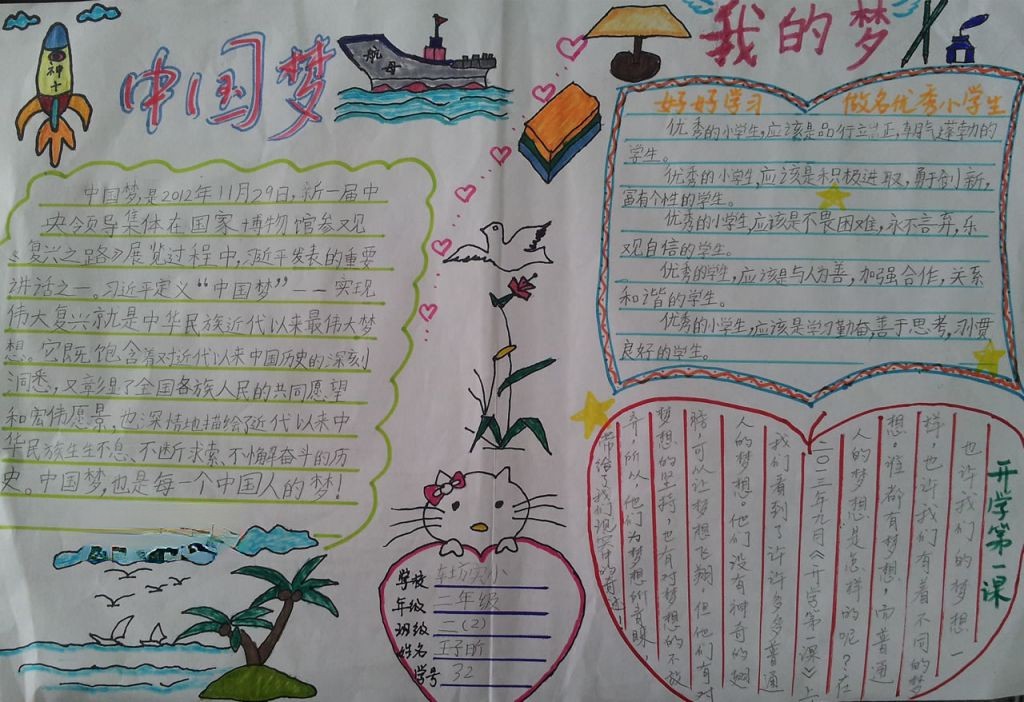 神十
中国梦
航母
我的梦
中国梦,是2012年11月29日,新一届中
央领导集体在国家博物馆参观
《复兴之路》展览过程中,习近平发表的重要
讲话之一。习近平定义“中国梦”——实现
伟大复兴就是中华民族近代以来最伟大梦
想。它既饱含着对近代以来中国历史的深刻
洞悉,又彰显了全国各族人民的共同愿望
和宏伟愿景,也深情地描绘了近代以来中
华民族生生不息、不断求索、不懈奋斗的历
史。中国梦,也是每一个中国人的梦!
好好学习 做名优秀小学生
优秀的小学生,应该是品行立正,朝气蓬勃的
学生。
优秀的小学生,应该是积极进取,勇于创新,
富有个性的学生。
优秀的小学生,应该是不畏困难,永不言弃,乐
观自信的学生。
优秀的学生,应该是与人为善,加强合作,关系
和谐的学生。
优秀的小学生,应该是学习勤奋,善于思考,习惯
良好的学生。
开学第一课
也许我们的梦想一
样,也许我们有着不同的梦
想。谁都有梦想,而普通
人的梦想是怎样的呢?在
二〇一三年九月《开学第一课》上
我们看到了许许多多普通
人的梦想。他们没有神奇的翅
膀,可以让梦想飞翔,但他们有对
梦想的坚持,也有对梦想的不放
弃,所以,他们为梦想所着
带给了我们现实中的奇迹
学校
年级 二年级
班级 二(2)
姓名 王子昕
学号 32